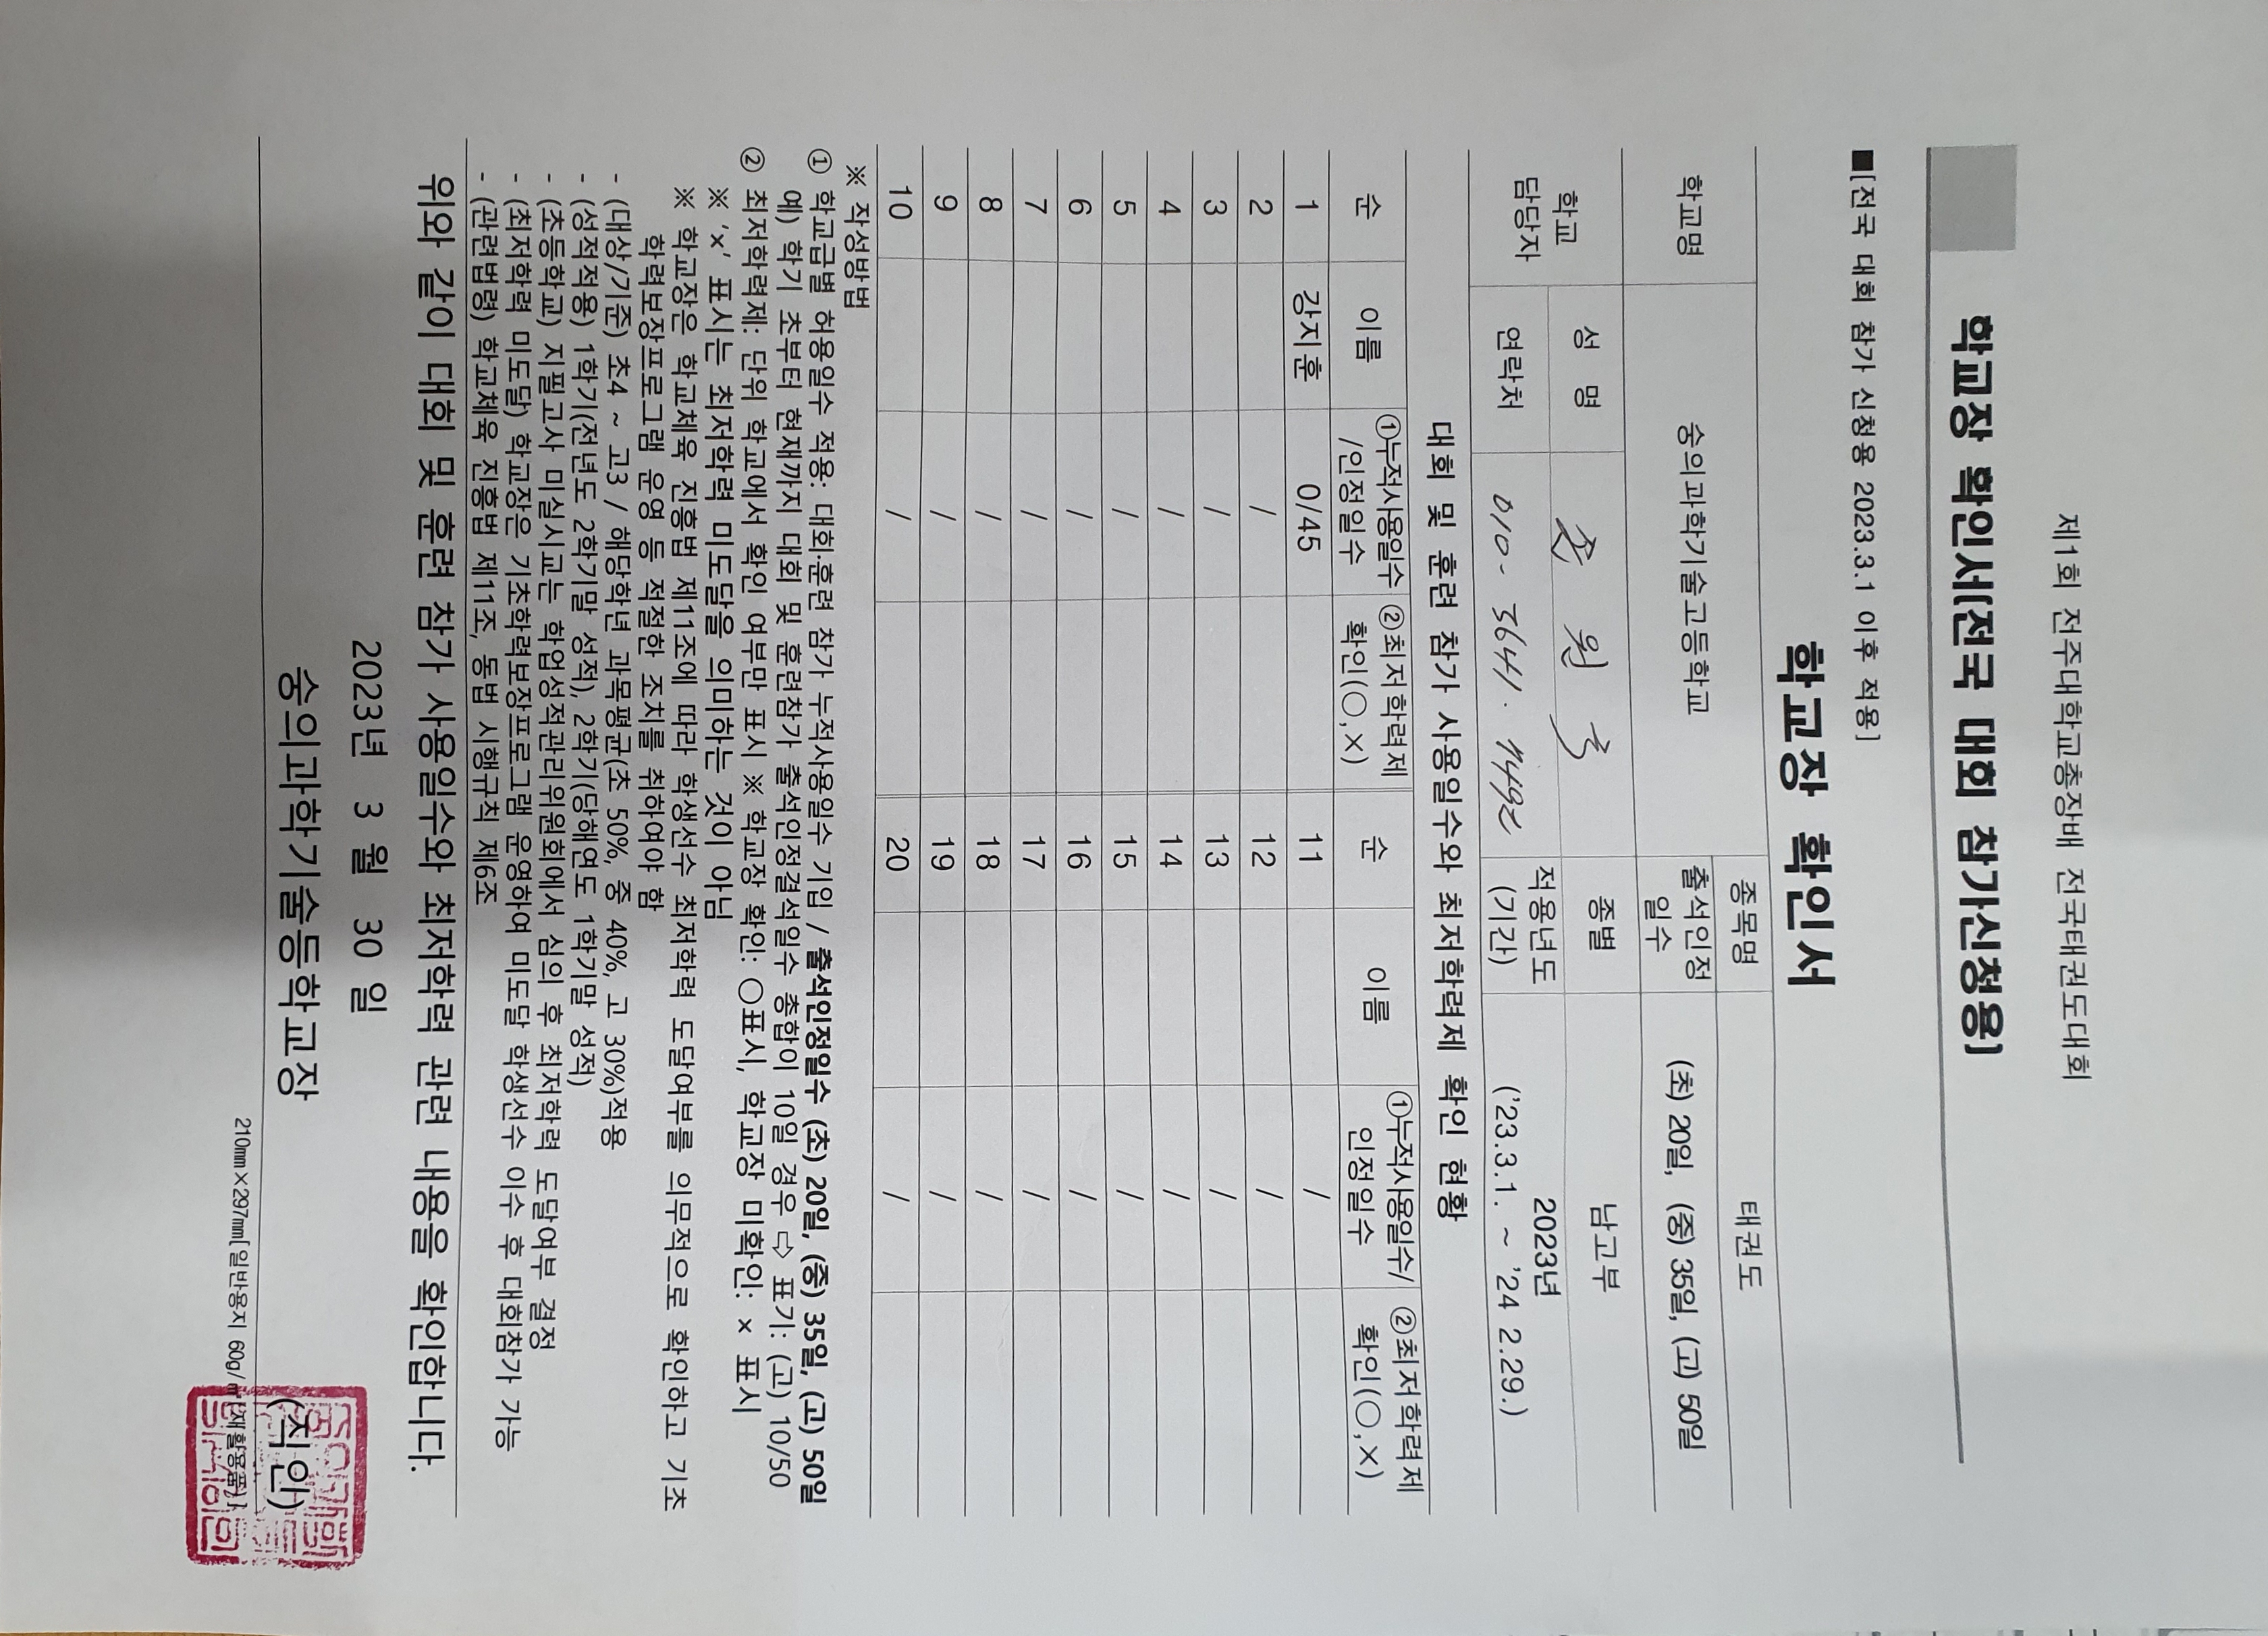 제1회 전주대학교총장배 전국태권도대회
학교장 확인서[전국 대회 참가신청용]
■[전국 대회 참가 신청용 2023.3.1 이후 적용]
학교장 확인서
학교명 숭의과학기술고등학교 종목명 태권도
출석인정일수 (초) 20일, (중) 35일, (고) 50일
학교 담당자 성 명 종별 남고부
연락처 010- 3641. 7492 적용년도 (기간) 2023년 ('23.3.1. ~ '24 2.29.)
대회 및 훈련 참가 사용일수와 최저학력제 확인 현황
순 이름 ①누적사용일수/인정일수 ②최저학력제 확인(○,×) 순 이름 ①누적사용일수/인정일수 ②최저학력제 확인(○,×)
1 강지훈 0/45 11 /
2 / 12 /
3 / 13 /
4 / 14 /
5 / 15 /
6 / 16 /
7 / 17 /
8 / 18 /
9 / 19 /
10 / 20 /
※ 작성방법
① 학교급별 허용일수 적용: 대회·훈련 참가 누적사용일수 기입 / 출석인정일수 (초) 20일, (중) 35일, (고) 50일
예) 학기 초부터 현재까지 대회 및 훈련참가 출석인정결석일수 총합이 10일 경우 ⇨ 표기: (고) 10/50
② 최저학력제: 단위 학교에서 확인 여부만 표시 ※ 학교장 확인: ○표시, 학교장 미확인: × 표시
※ 'x' 표시는 최저학력 미도달을 의미하는 것이 아님
※ 학교장은 학교체육 진흥법 제11조에 따라 학생선수 최저학력 도달여부를 의무적으로 확인하고 기초
학력보장프로그램 운영 등 적절한 조치를 취하여야 함
- (대상/기준) 초4 ~ 고3 / 해당학년 과목평균(초 50%, 중 40%, 고 30%)적용
- (성적적용) 1학기(전년도 2학기말 성적), 2학기(당해연도 1학기말 성적)
- (초등학교) 지필고사 미실시교는 학업성적관리위원회에서 심의 후 최저학력 도달여부 결정
- (최저학력 미도달) 학교장은 기초학력보장프로그램 운영하여 미도달 학생선수 이수 후 대회참가 가능
- (관련법령) 학교체육 진흥법 제11조, 동법 시행규칙 제6조
위와 같이 대회 및 훈련 참가 사용일수와 최저학력 관련 내용을 확인합니다.
2023년 3 월 30 일
숭의과학기술등학교장 (직인)
210mm×297mm[일반용지 60g/㎡(재활용품)]